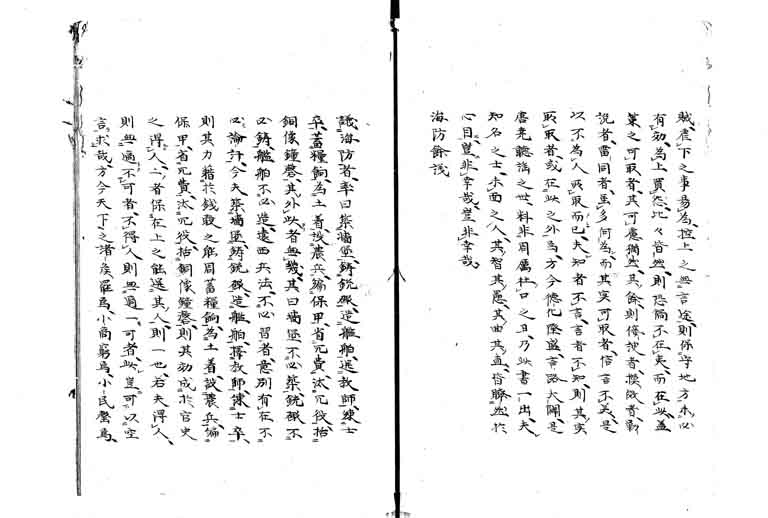 賊虐下之事易為控上之無言途則保守地方未必
有効為上買怨比々皆然則隠禍不在夷而在此蓋
策之可取者其可慮猶然其餘則倭使者模效者彰
説者雷同者虽多何為而其実可取者信言不美是
以不為人所取而已夫知者不言言者不知則其実
取取者或在此之外焉方今德化隆盛言路大開是
唐堯聴謗之世料非周厲杜口之日乃此書一出夫
知名之士未面之人其智其愚其曲其直皆瞭然於
心目豈非幸哉豈非幸哉
海防餘戔
議海防者率曰築墻堡鋳銃砲造艦舶選教師練士
卒蓄糧餉為土着設農兵編保甲省冗費汰冗役抬
銅像鐘磬其外此者無幾其曰墻堡不必築銃砲不
必鋳艦舶不必造遠西兵法不必習者意別有在不
必論汁今夫築墻堡鋳銃砲造艦舶擇教師練士卒
則其力籍於銭穀之能周蓄糧餉為土着設農兵編
保甲省冗費汰冗役抬銅像鐘磬則其効成於官吏
之得人二者保在上之能選其人則一也若夫得人
則無過不可者不得人則無過一可者此豈可以空
言求哉方今天下之諸侯羅為小商窮為小民聲為